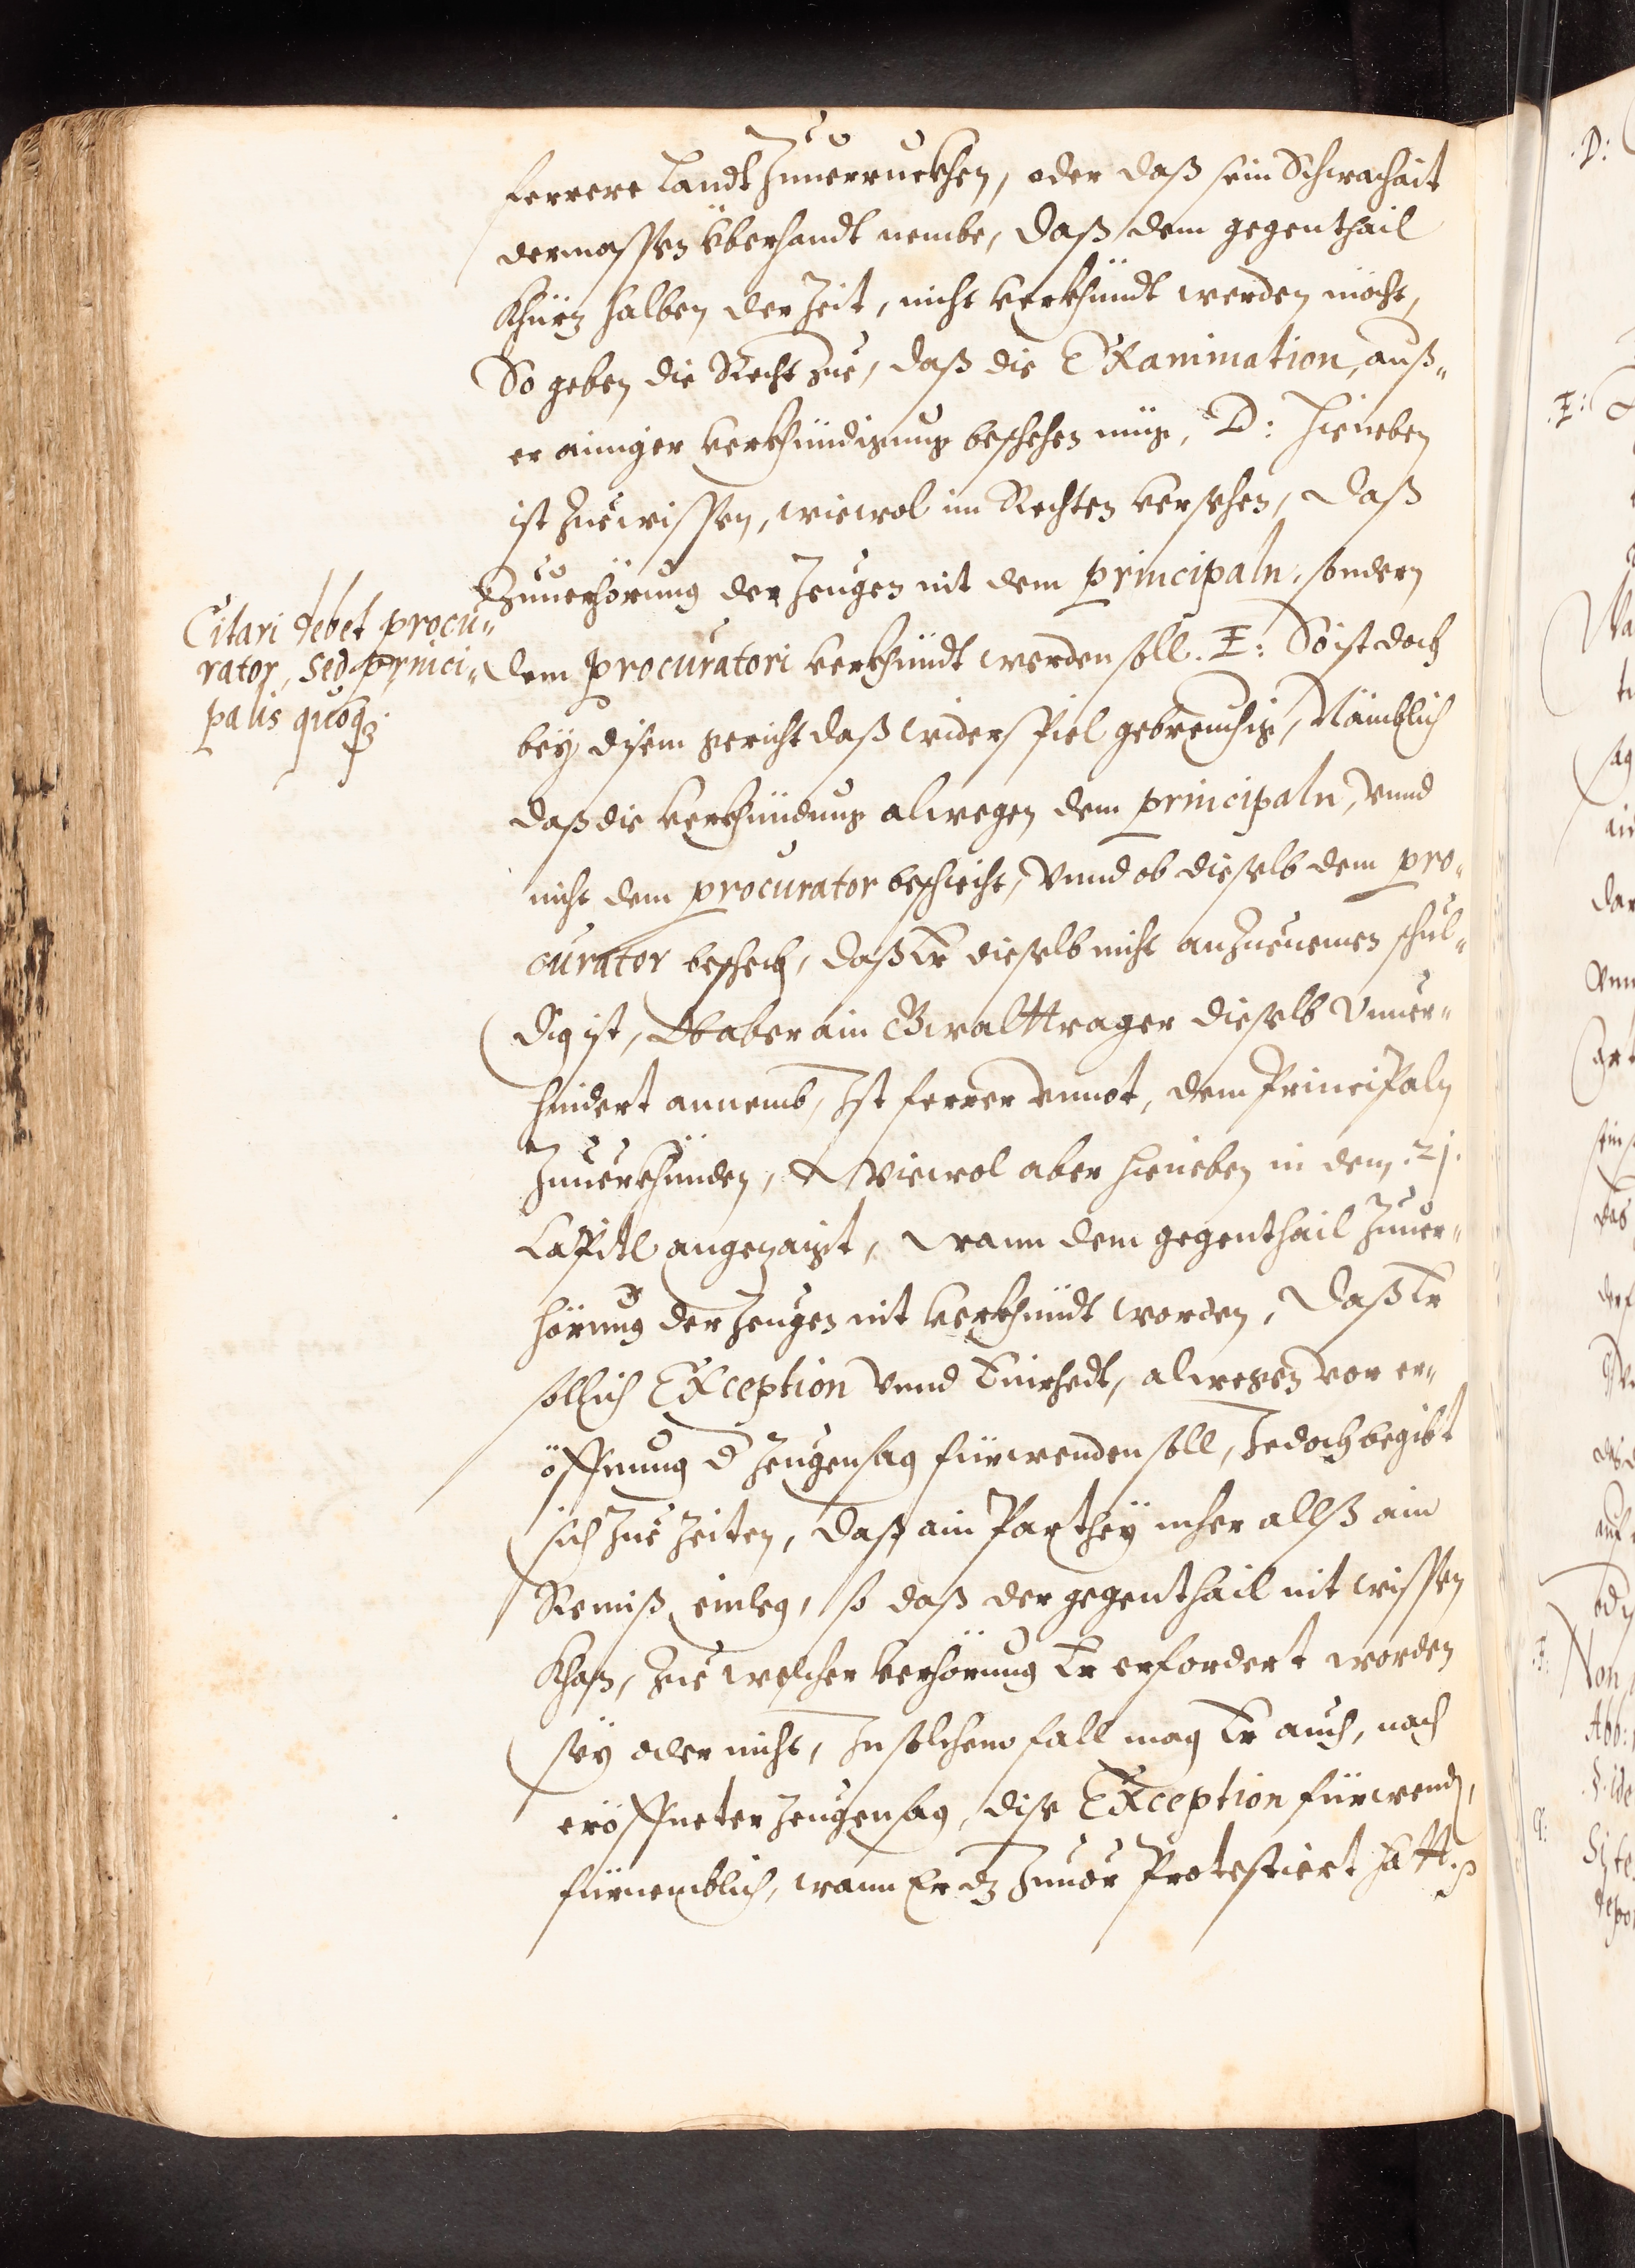 ferrere Landt Zuuerruckhen, oder daß sein Schwachait
dermassen überhandt nembe, daß dem gegenthail
Khürz halben der Zeit, nicht verkhündt werden möcht,
So geben die Recht zue, daß die Examination, auß„
er ainiger verkhündigung beschehen müg, D: Hieneben
ist Zuewissen, wiewol im Rechten versehen, daß
Zuuerhörung der Zeugen nit dem principaln, sondern
Citari debet procu„
rator, sed princi„
palis quoq3.
dem procuratori verkhündt werden soll. E: So ist doch
bey disem gericht daß widerspiel gebreuchig, Nämblich
daß die verkhündung alwegen dem principaln, vnnd
nicht dem procurator beschicht, Vnnd ob dieselb dem pro„
curator beschech, daß Er dieselb nicht anzuenemen schul„
dig ist, Ob aber ain Gwalttrager dieselb Vnuer„
hindert annemb, Ist ferrer vnnot, dem Principaln
Zuuerkhünden, Wiewol aber hieneben in dem .21.
Capitl angezaigt, wann dem gegenthail Zuuer„
hörung der Zeugen nit verkhündt worden, daß Er
sollich Exception vnnd Einredt, alwegen vor er„
öffnung d Zeugensag fürwenden soll, Jedoch begibt
sich Zue Zeiten, daß ain Parthey mher allß ain
Remiß einleg, so daß der gegenthail nit wissen
Khan, Zue welcher verhörung Er erfordert worden
sey oder nicht, In solchem fall mag Er auch, nach
eröffneter Zeugensag, dise Exception fürwend,
fürnemblich, wann Er dz Zuuor Protestiert hatt.